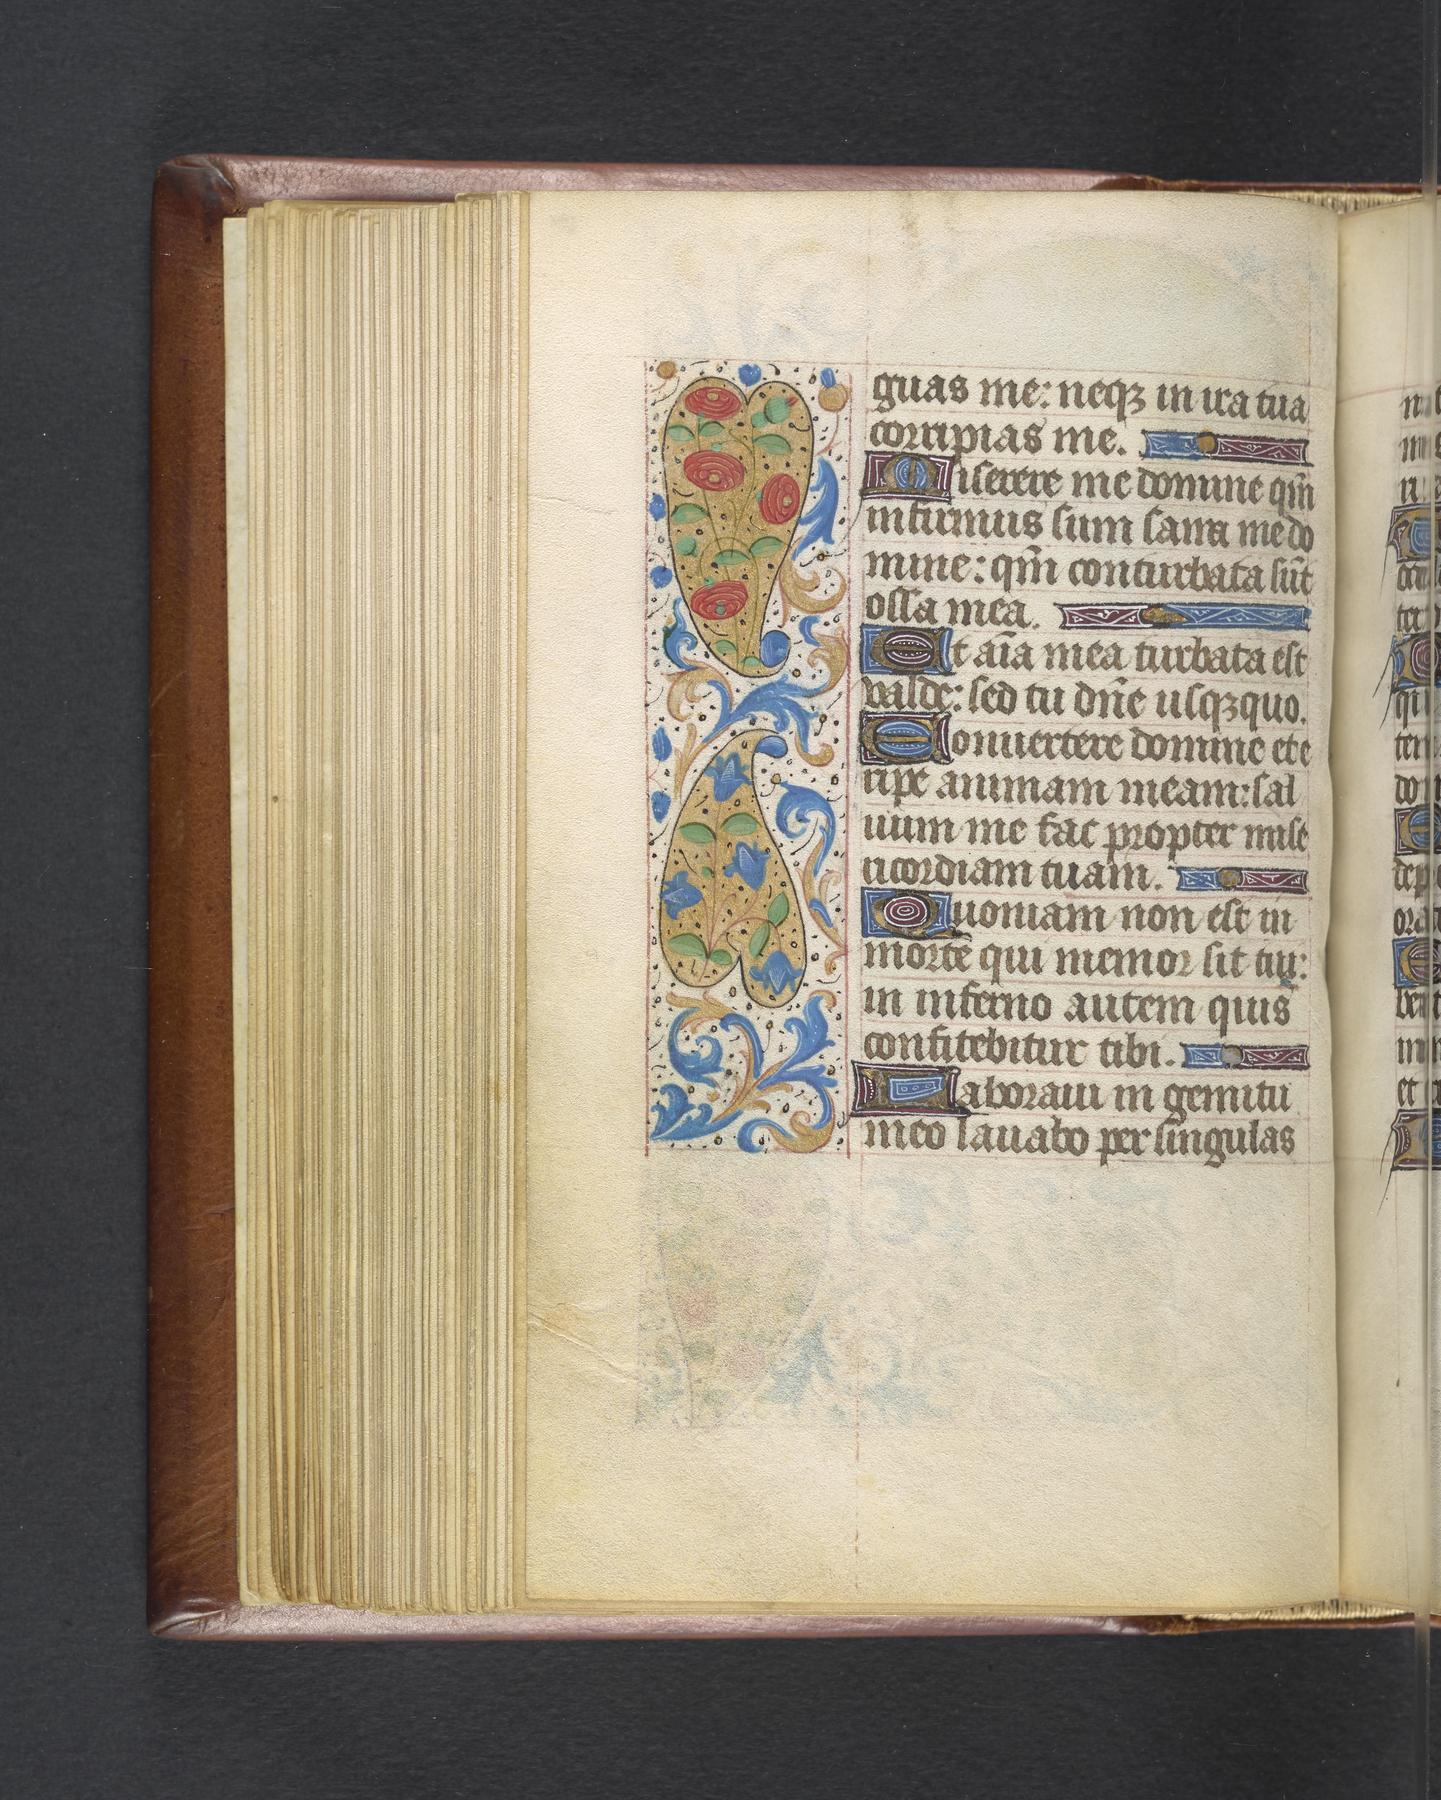 guas me: neqꝫ in ira tua
corripias me.
Miserere me domine qm̄
infirmus sum sana me do
mine: qm̄ conturbata sūt
ossa mea.
Et aīa mea turbata est
valde: sed tu dn̄e usqꝫquo.
Conuertere domine et e
ripe animam meam: sal
uum me fac propter mise
ricordiam tuam.
Quoniam non est in
morte qui memor sit tui:
in inferno autem quis
confitebitur tibi.
Laboraui in gemitu
meo lauabo per singulas